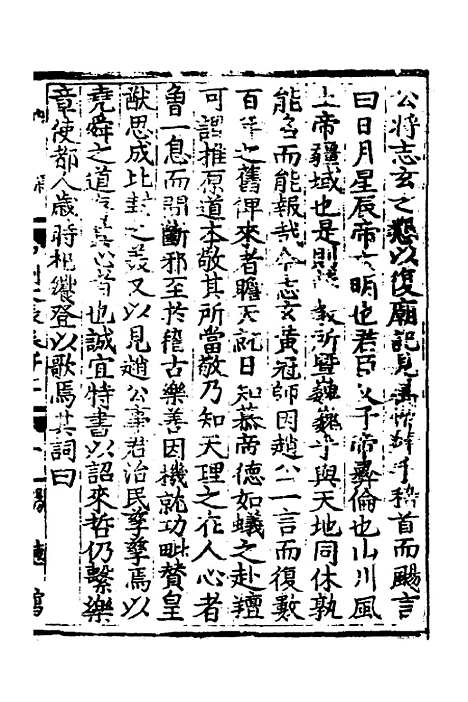 公將志玄之懇以復廟記見手稽首而颺言
曰日月星辰帝之明也君臣父子帝彝倫也山川風
土帝疆域也是則教所曁巍巍乎與天地同休孰
能名而能報哉今志玄黃冠師因趙公一言而復數
百年之舊俾來者瞻天就日知慕帝德如蟻之赴羶
可謂推原道本敬其所當敬乃知天理之在人心者
魯一息而間斷邪至於稽古樂善因機就功毗賛皇
猷思成比封之義又以見趙公事君治民孳孳焉以
堯舜之道爲其心者也誠宜特書以詔來哲仍繫樂
章使都人歲時杞饗登以歌焉其詞曰